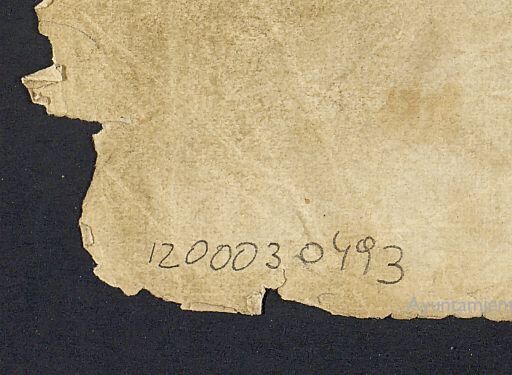 1200030493
Ayuntamient